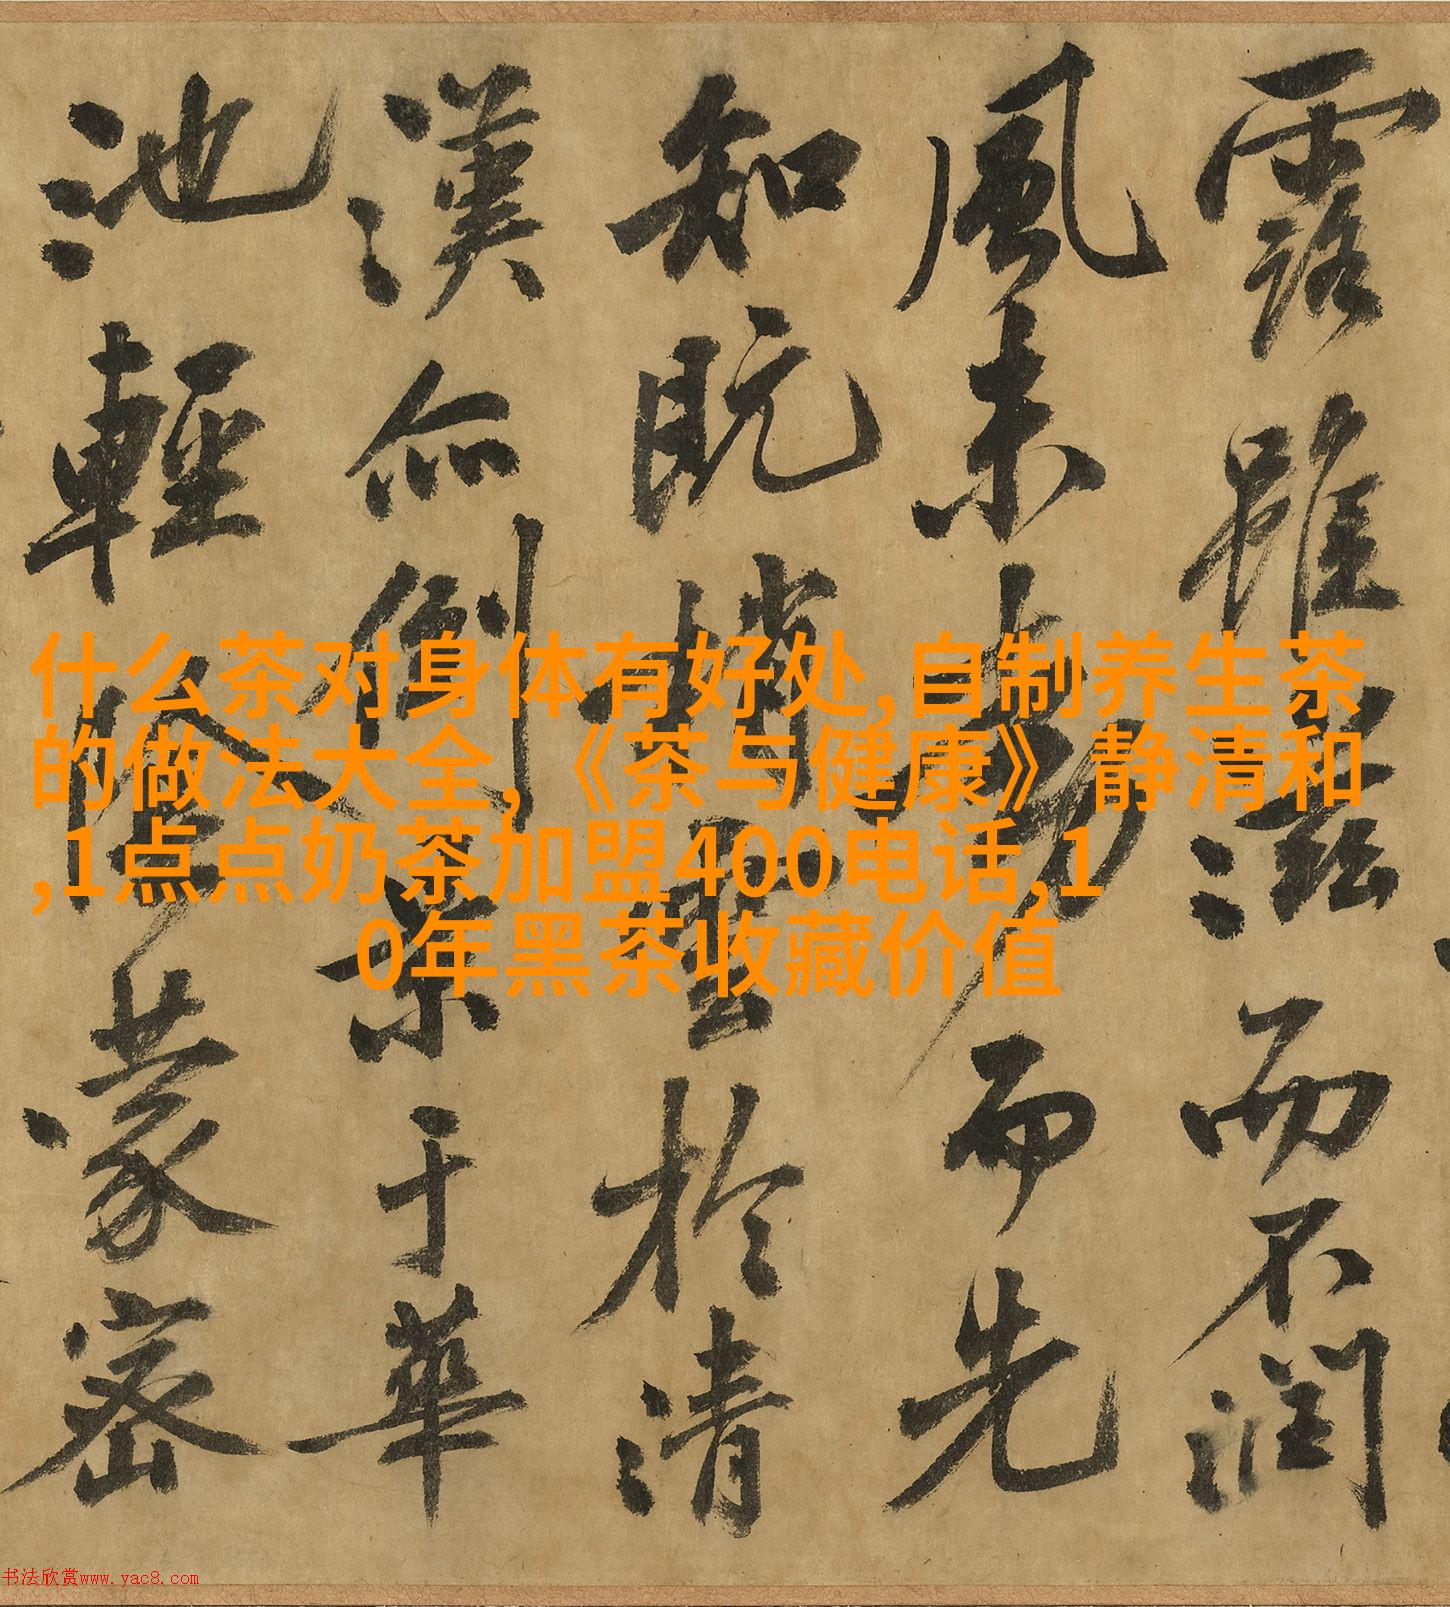 露雖滋而不潤
風未動而先
知既梢雲於清
漢亦倒景于華
池輕陰蒙密
什么茶对身体有好处,自制养生茶
的做法大全,《茶与健康》静清和
,1点点奶茶加盟400电话,1
0年黑茶收藏价值
书法欣赏www.yac8.com